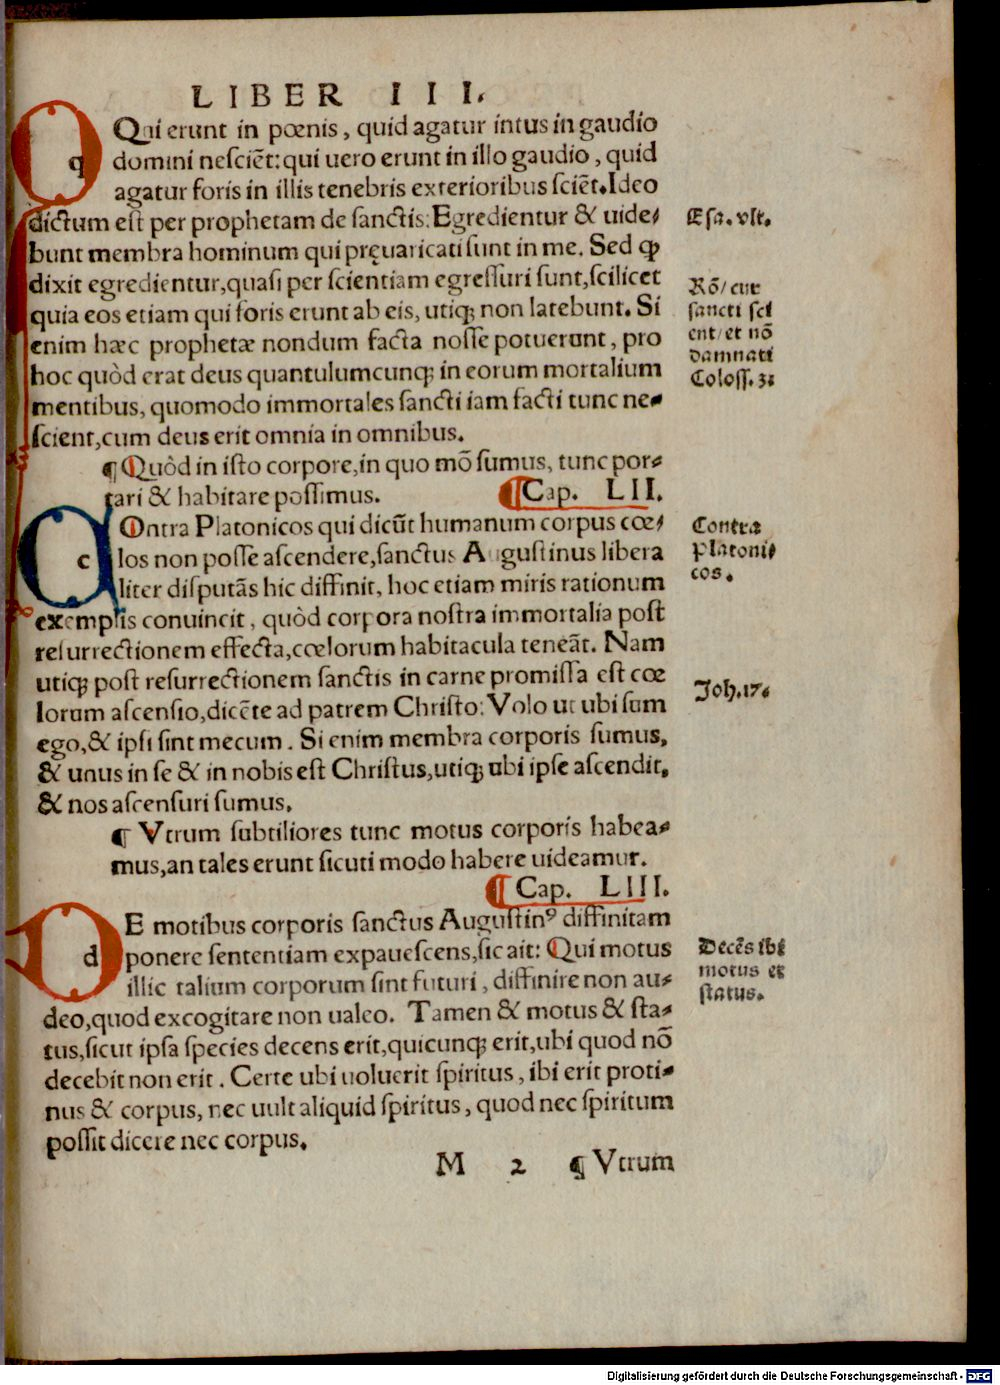 LIBER III.
QUi erunt in pœnis, quid agatur intus in gaudio
q domini nesciēt: qui uero erunt in illo gaudio, quid
agatur foris in illis tenebris exterioribus sciēt. Ideo
dictum est per prophetam de sanctis: Egredientur & uide-
bunt membra hominum qui pręuaricati sunt in me. Sed ꝙ
dixit egredientur, quasi per scientiam egressuri sunt, scilicet
quia eos etiam qui foris erunt ab eis, utiqꝫ non latebunt. Si
enim hæc prophetæ nondum facta nosse potuerunt, pro
hoc quòd erat deus quantulumcunqꝫ in eorum mortalium
mentibus, quomodo immortales sancti iam facti tunc ne-
scient, cum deus erit omnia in omnibus.
Esa. vlt.
Rō/ cur
sancti sci
ent/ et nō
damnati
Coloss. 3.
¶ Quòd in isto corpore, in quo mō sumus, tunc por-
tari & habitare possimus. ¶Cap. LII.
COntra Platonicos qui dicūt humanum corpus cœ-
c los non posse ascendere, sanctus Augustinus libera
liter disputās hic diffinit, hoc etiam miris rationum
exemplis conuincit, quòd corpora nostra immortalia post
resurrectionem effecta, cœlorum habitacula teneāt. Nam
utiqꝫ post resurrectionem sanctis in carne promissa est cœ
lorum ascensio, dicēte ad patrem Christo: Volo ut ubi sum
ego, & ipsi sint mecum. Si enim membra corporis sumus,
& unus in se & in nobis est Christus, utiqꝫ ubi ipse ascendit,
& nos ascensuri sumus.
Contra
Platoni-
cos.
Joh. 17.
¶ Vtrum subtiliores tunc motus corporis habea-
mus, an tales erunt sicuti modo habere uideamur.
¶ Cap. LIII.
DE motibus corporis sanctus Augustinꝰ diffinitam
d ponere sententiam expauescens, sic ait: Qui motus
illic talium corporum sint futuri, diffinire non au-
deo, quod excogitare non ualeo. Tamen & motus & sta-
tus, sicut ipsa species decens erit, quicunqꝫ erit, ubi quod nō
decebit non erit. Certe ubi uoluerit spiritus, ibi erit proti-
nus & corpus, nec uult aliquid spiritus, quod nec spiritum
possit dicere nec corpus.
Decēs ibi
motus et
status.
M 2 ¶ Vtrum
Digitalisierung gefördert durch die Deutsche Forschungsgemeinschaft - DFG